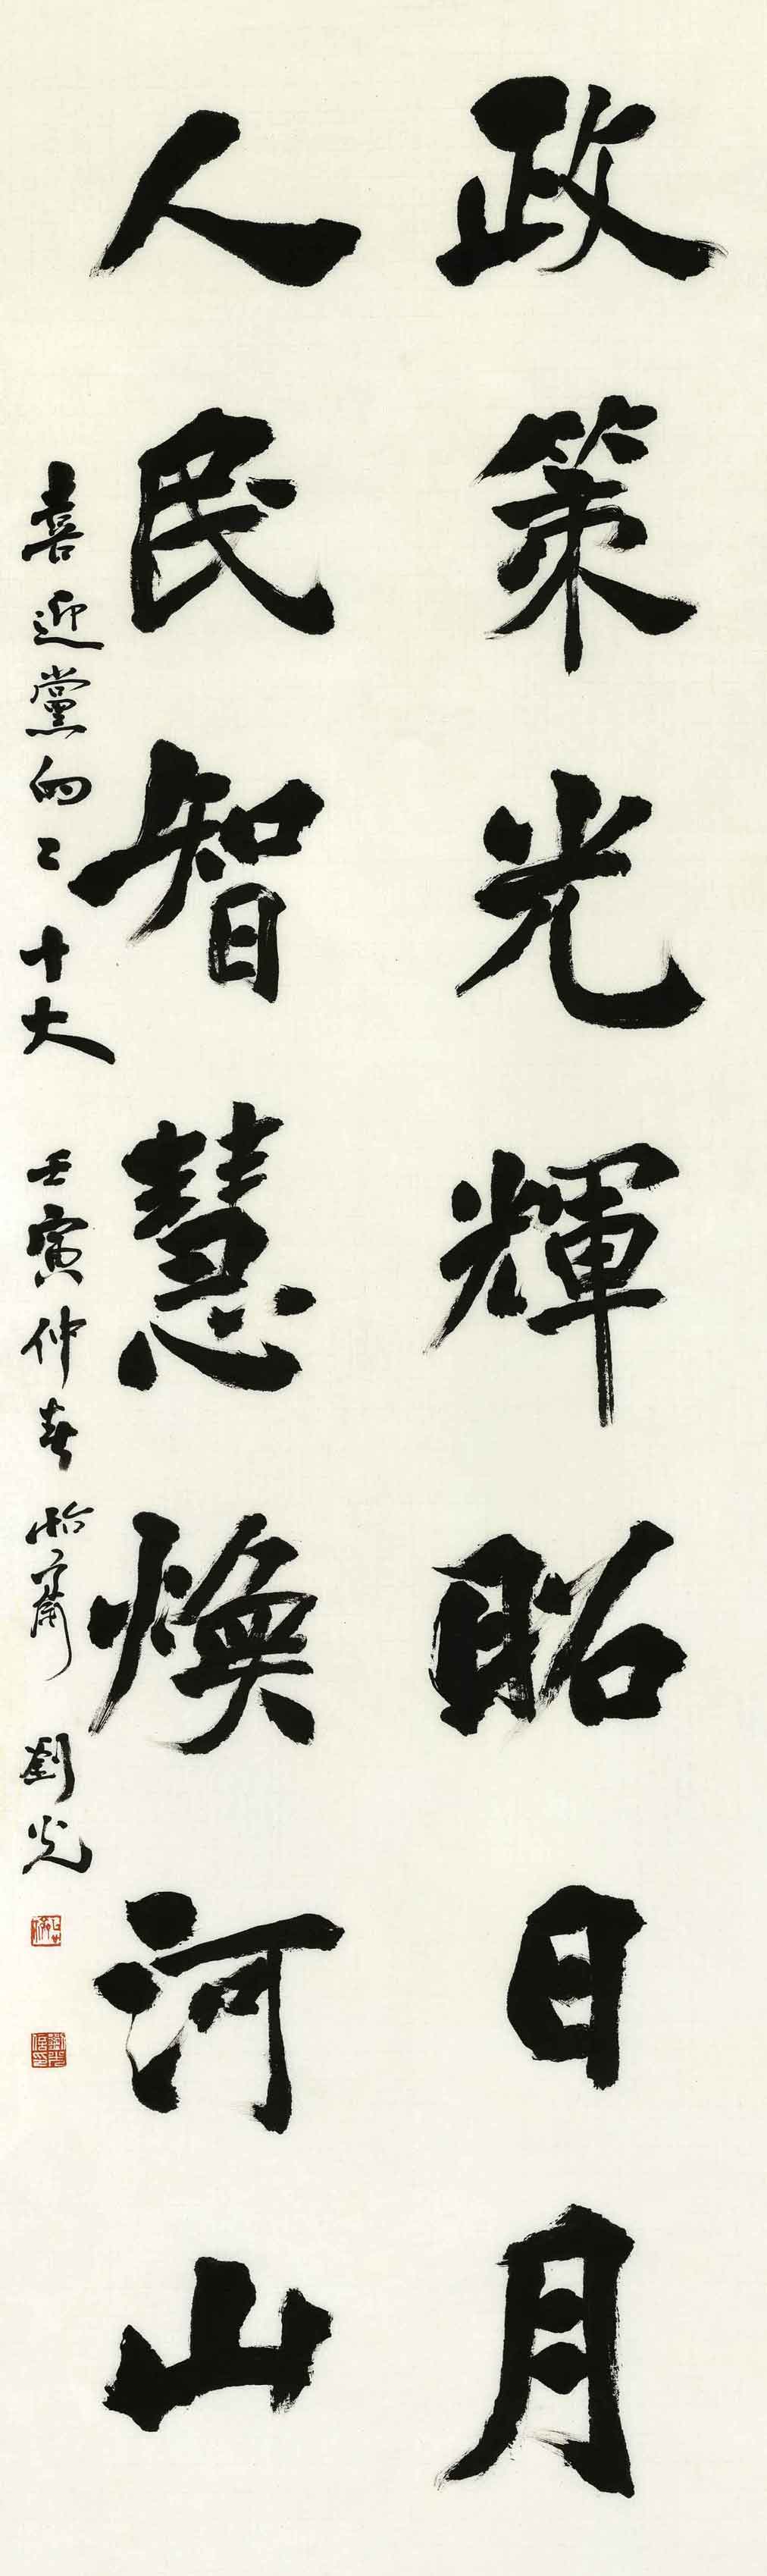 政策光輝昭日月
人民智慧煥河山
喜迎黨的二十大 壬寅仲春 怡齋 劉光